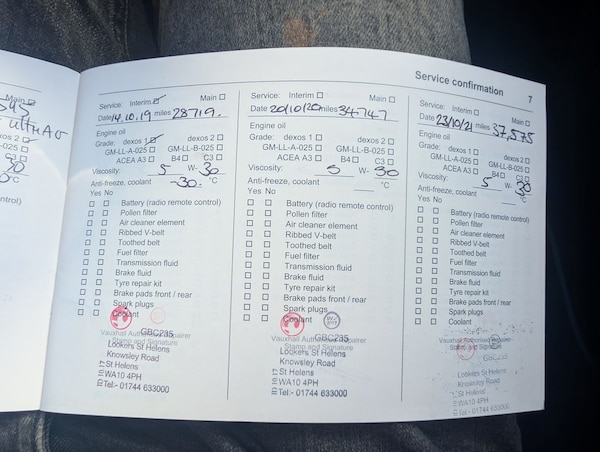 Service confirmation
7
Main
ultra
dexos 2
C3
30
°C
ntrol)
Service: Interim ☑ Main ☐
Date 14.10.19 miles 28719.
Engine oil
Grade: dexos 1 ☑ dexos 2 ☐
GM-LL-A-025 ☐ GM-LL-B-025 ☐
ACEA A3 ☐ B4 ☐ C3 ☐
Viscosity: 5 W- 30
Anti-freeze, coolant -30. °C
Yes No
☐ ☐ Battery (radio remote control)
☐ ☐ Pollen filter
☐ ☐ Air cleaner element
☐ ☐ Ribbed V-belt
☐ ☐ Toothed belt
☐ ☐ Fuel filter
☐ ☐ Transmission fluid
☐ ☐ Brake fluid
☐ ☐ Tyre repair kit
☐ ☐ Brake pads front / rear
☐ ☐ Spark plugs
☐ ☐ Coolant
Vauxhall Authorised Repairer
Stamp and Signature
GBC235
Lookers St Helens
Knowsley Road
St Helens
WA10 4PH
Tel:- 01744 633000
Service: Interim ☐ Main ☐
Date 20/10/20 miles 34747
Engine oil
Grade: dexos 1 ☐ dexos 2 ☐
GM-LL-A-025 ☐ GM-LL-B-025 ☐
ACEA A3 ☐ B4 ☐ C3 ☐
Viscosity: 5 W- 30
Anti-freeze, coolant °C
Yes No
☐ ☐ Battery (radio remote control)
☐ ☐ Pollen filter
☐ ☐ Air cleaner element
☐ ☐ Ribbed V-belt
☐ ☐ Toothed belt
☐ ☐ Fuel filter
☐ ☐ Transmission fluid
☐ ☐ Brake fluid
☐ ☐ Tyre repair kit
☐ ☐ Brake pads front / rear
☐ ☐ Spark plugs
☐ ☐ Coolant
Vauxhall Authorised Repairer
Stamp and Signature
GBC235
Lookers St Helens
Knowsley Road
St Helens
WA10 4PH
Tel:- 01744 633000
Service: Interim ☐ Main ☐
Date 23/10/21 miles 37,575
Engine oil
Grade: dexos 1 ☐ dexos 2 ☐
GM-LL-A-025 ☐ GM-LL-B-025 ☐
ACEA A3 ☐ B4 ☐ C3 ☐
Viscosity: 5 W- 30
Anti-freeze, coolant °C
Yes No
☐ ☐ Battery (radio remote control)
☐ ☐ Pollen filter
☐ ☐ Air cleaner element
☐ ☐ Ribbed V-belt
☐ ☐ Toothed belt
☐ ☐ Fuel filter
☐ ☐ Transmission fluid
☐ ☐ Brake fluid
☐ ☐ Tyre repair kit
☐ ☐ Brake pads front / rear
☐ ☐ Spark plugs
☐ ☐ Coolant
Vauxhall Authorised Repairer
Stamp and Signature
GBC235
Lookers St Helens
Knowsley Road
St Helens
WA10 4PH
Tel:- 01744 633000